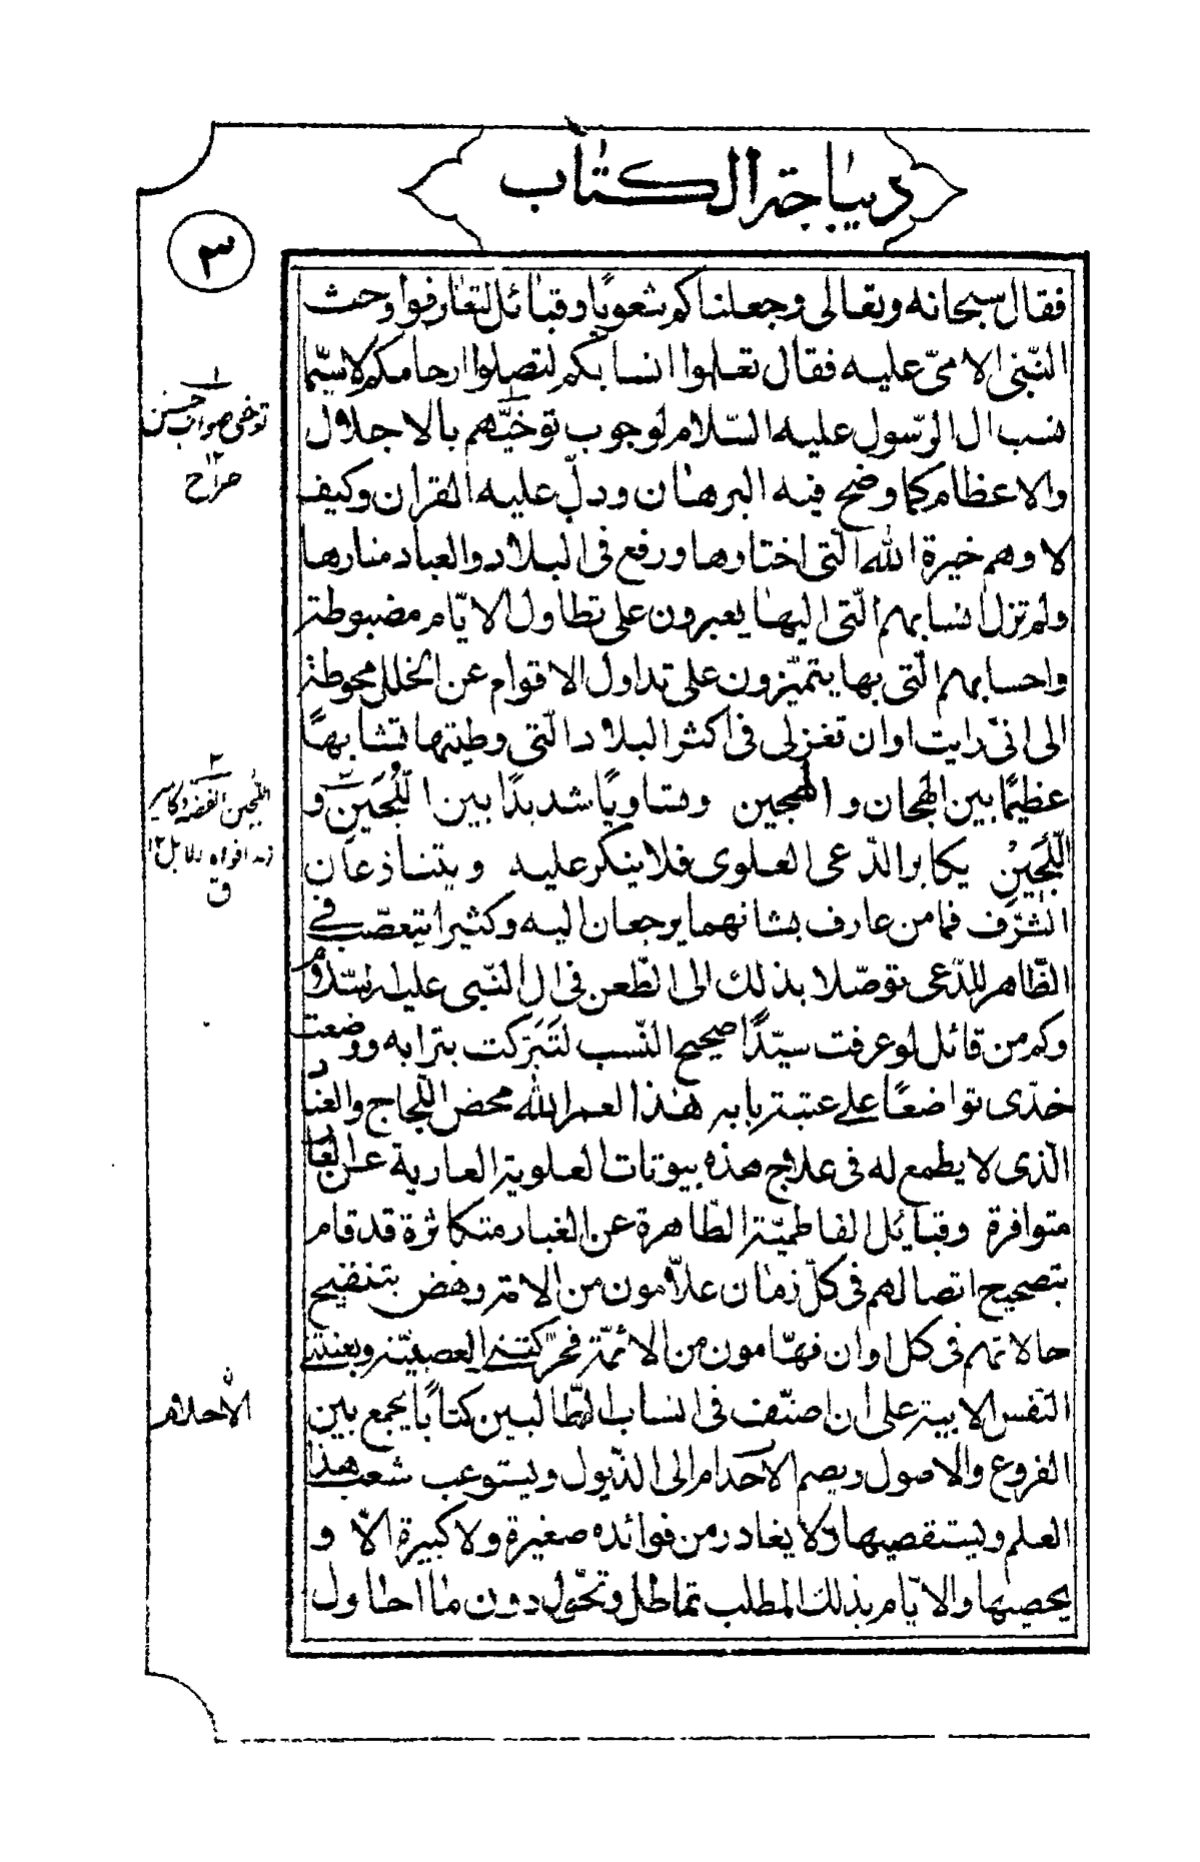 ديباجة الكتاب
٣
فقال سبحانه وتعالى وجعلناكم شعوبًا وقبائل لتعارفوا وحث
النّبى الامىّ عليه فقال تعلموا انسابكم لتصلوا ارحامكم لاسيّما
نسب ال الرّسول عليه السّلام لوجوب توخيّهم بالاجلال
والاعظام كما وضح فيه البرهان ودلّ عليه القران وكيف
لا وهم خيرة الله الّتى اختارها ورفع فى البلاد والعباد منارها
ولم تزل انسابهم الّتى اليها يعبرون على تطاول الايّام مضبوطة
واحسابهم الّتى بها يتميّزون على تداول الاقوام عن الخلل محوطة
الى انّى رايت اوان تغربى فى اكثر البلاد الّتى وطيتها تشابهًا
عظيمًا بين الهجان و الهجين وتساويًا شديدًا بين اللُّجَينِ و
اللَّجِينِ يكابر الدّعى العلوى فلا ينكر عليه ويتنازعان
الشّرف فما من عارف بشانهما يرجعان اليه وكثيرا تيعصّب فى
الظّاهر للمدّعى توصّلا بذلك الى الطّعن فى ال النّبى عليه السّلام
وكم من قائل لو عرفت سيّدًا صحيح النّسب لتَبَرّكت بترابه ووضعت
خدّى تواضعًا على عتبة بابه هذا لعمر الله محض اللّجاج والعناد
الّذى لا يطمع له فى علاج هذه بيوتات العلوية العارية عن العار
متوافرة وقبايل الفاطميّة الطّاهرة عن الغبار متكاثرة قد قام
بتصحيح اتصالهم فى كلّ زمان علاّمون من الامة ونهض بتنقيح
حالاتهم فى كل اوان فهّامون من الائمّة فحرّكتنى العصبيّة وبعثتنى
النّفس الابية على ان اصنّف فى انساب الطّالبين كتابًا يجمع بين
الفروع والاصول ويضم الاجذام الى الذّيول ويستوعب شعب هذا
العلم ويستقصيها ولا يغادر من فوائده صغيرة ولا كبيرة الاّ و
يحصيها والايّام بذلك المطلب تماطل وتحّول دون ما احاول
١
توخى صواب جستن
١٢
صراح
٢
اللُّجين الفضة
افواه الابل ١٢
ق
ن
الاحلام